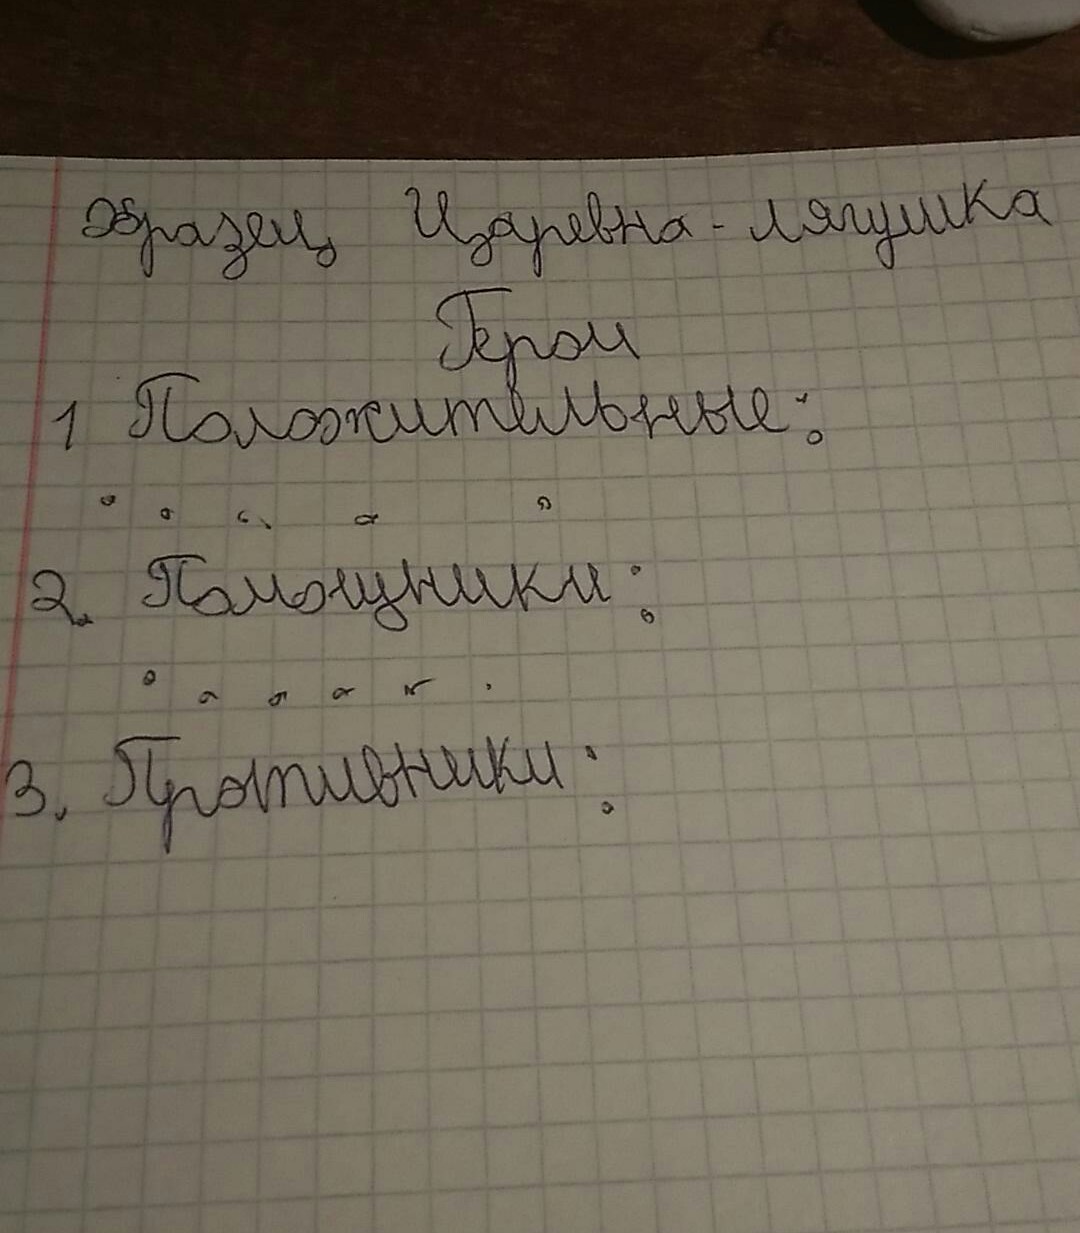 Образец Царевна-лягушка
Герои
1 Положительные:
. . . . .
2. Помощники:
. . . . . .
3. Противники: